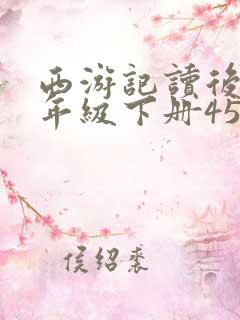 西游記讀後
年级下册45
侯绍裘